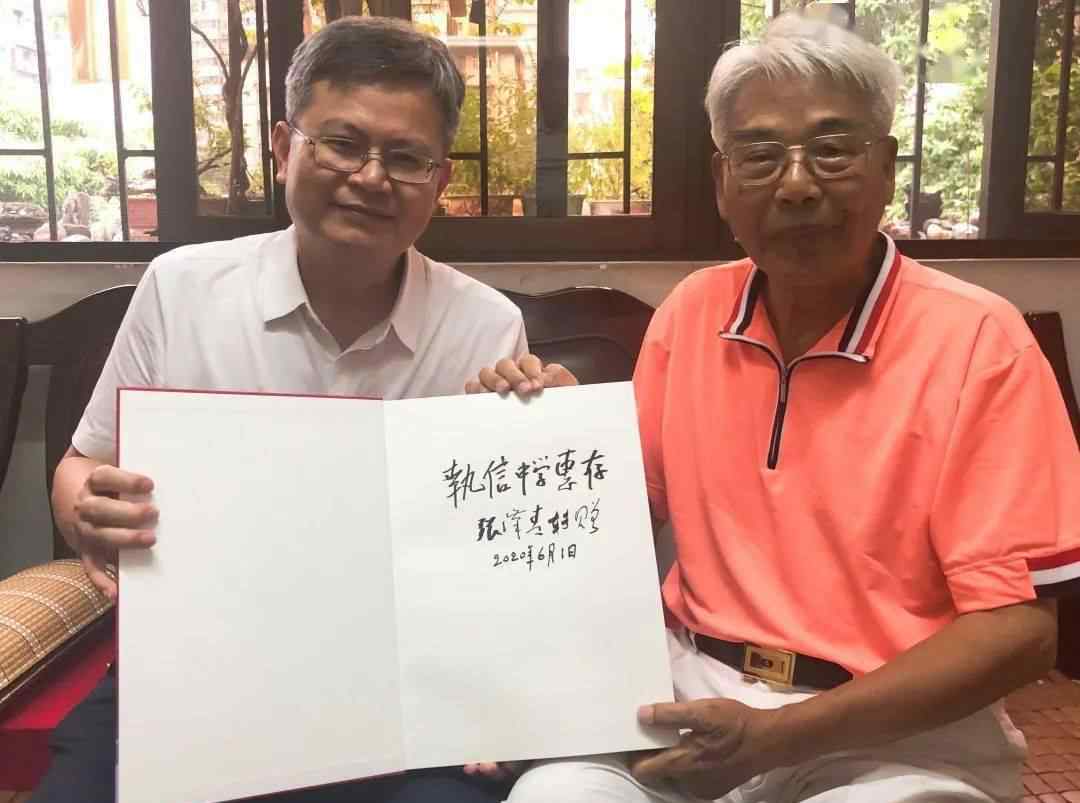 執信中学惠存
张 赠
2020年6月1日